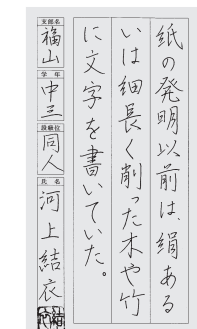 紙の発明以前は、絹ある
いは細長く削った木や竹
に文字を書いていた。
支部名
福山
学年
中三
段級位
同人
氏名
河上結衣